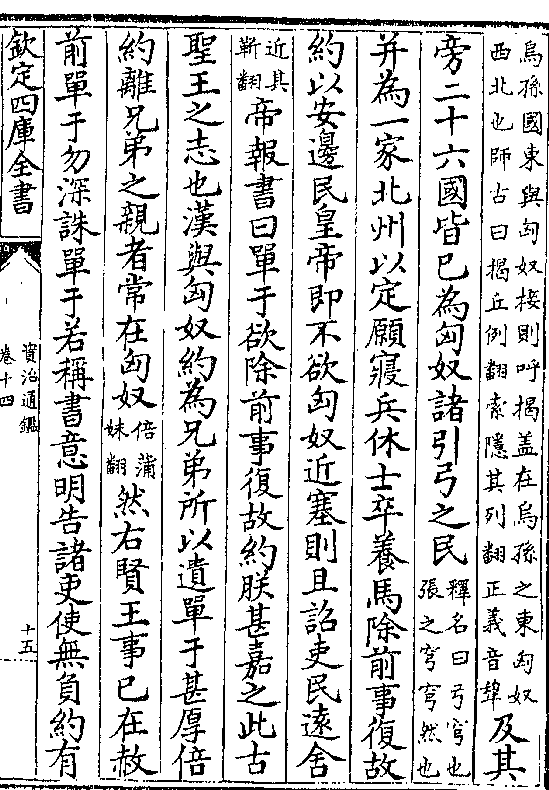 烏孫國東與匈奴接則呼揭盖在烏孫之東匈奴
西北也師古曰揭丘例翻索隱其列翻正義音䅥
及其
旁二十六國皆已為匈奴諸引弓之民
釋名曰弓穹也
張之穹穹然也
并為一家北州以定願寢兵休士卒養馬除前事復故
約以安邊民皇帝即不欲匈奴近塞則且詔吏民遠舍
近其
靳翻
帝報書曰單于欲除前事復故約朕甚嘉之此古
聖王之志也漢與匈奴約為兄弟所以遺單于甚厚倍
約離兄弟之親者常在匈奴
倍蒲
妹翻
然右賢王事已在赦
前單于勿深誅單于若稱書意明告諸吏使無負約有
欽定四庫全書
資治通鑑
卷十四
十五